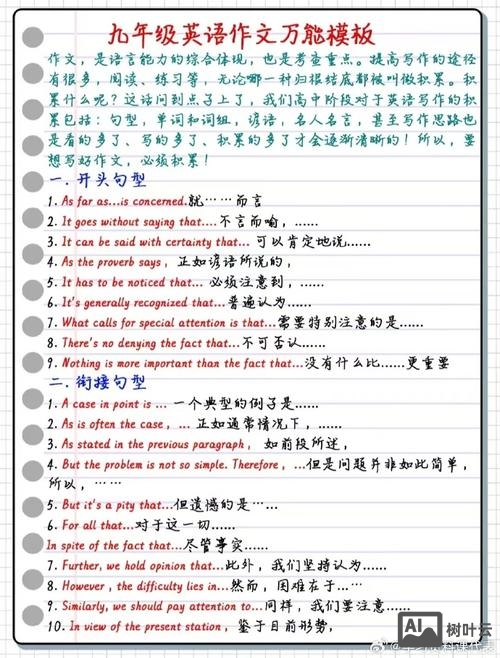 九年级英语作文万能模板
作文，是语言能力的综合体现，也是考查重点。提高写作的途径
有很多，阅读、练习等，无论哪一种归根结底都被叫做积累。积
累什么呢？这话问到点子上了，我们高中阶段对于英语写作的积
累包括：句型，单词和词组，谚语，名人名言，甚至写作思路也
是看的多了、写的多了、积累的多了才会逐渐清晰的！所以，要
想写好作文，必须积累！
一．开头句型
1. As far as...is concerned.就……而言
2. It goes without saying that.... 不言而喻，......
3. It can be said with certainty that... 可以肯定地说......
4. As the proverb says，正如谚语所说的，
5. It has to be noticed that... 必须注意到，......
6. It's generally recognized that...普遍认为......
7. What calls for special attention is that...需要特别注意的是......
8. There's no denying the fact that...不可否认......
9. Nothing is more important than the fact that...没有什么比......更重要
二．衔接句型
1. A case in point is ... 一个典型的例子是......
2. As is often the case，... 正如通常情况下，......
3. As stated in the previous paragraph，如前段所述，
4. But the problem is not so simple. Therefore，...但是问题并非如此简单，
所以，……
5. But it's a pity that...但遗憾的是......
6. For all that...对于这一切......
In spite of the fact that...尽管事实......
7. Further, we hold opinion that...此外，我们坚持认为......
8. However，the difficulty lies in...然而，困难在于...…
9. Similarly, we should pay attention to...同样，我们要注意......
10. In view of the present station，鉴于目前形势，
AI
树叶云